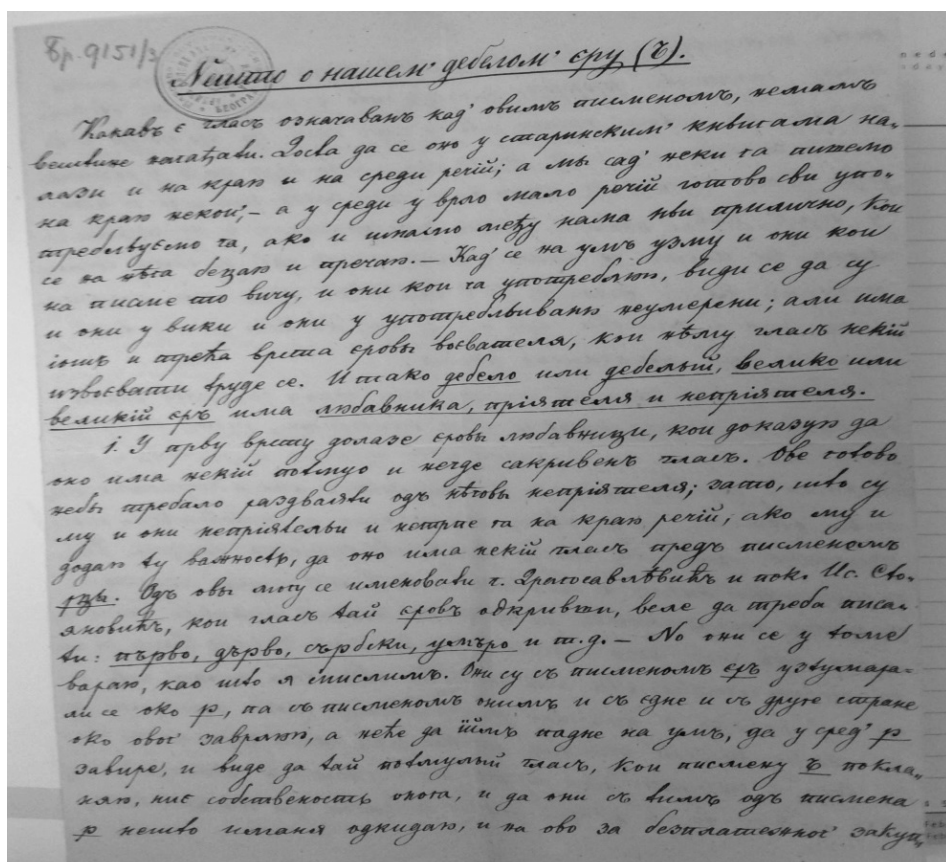 Бр. 9151/3
Нешто о нашемъ дебеломъ єру (ъ).
Какавъ є гласъ означаванъ кад' овимъ писменомъ, немамъ
вештине погађати. Доста да се оно у старинским' књигама на-
лази и на краю и на среди речій; а мы сад' неки га пишемо
на краю некои, – а у среди у врло мало речій готово сви упо-
требљуємо га, ако и имамо међу нама ньи прилично, кои
се на нѣга бецаю и пречаю. – Кад' се на умъ узму и они кои
на писме то вичу, и они кои га употреблю, види се да су
и они у вики и они у употребљиваню неумерени; али има
іошъ и трећа врста єровы воєвателя, кои нѣму гласъ некій
извоєвати труде се. И тако дебело или дебелый, велико или
великій єръ има любавника, пріятеля и непріятеля.
1. У прву врсту долазе єровы любавници, кои доказую да
оно има некій потмуо и негде сакривенъ гласъ. Ове готово
небы требало раздваяти одъ нѣговы непріятеля; зато, што су
му и они непріятельи и нетрпе га на краю речій, ако му и
додаю ту важность, да оно има некій гласъ предъ писменомъ
рцы. Одъ овы могу се именовати г. Драгосавлѣвићъ и пок. Ис. Сто-
яновићъ, кои гласъ тай єровъ одкривши, веле да треба писа-
ти: първо, дърво, сърбски, умъро и т.д. – No они се у томе
вараю, као што я мислимъ. Они су съ писменомъ єръ узтумара-
ли се око р, па съ писменомъ онимъ и съ єдне и съ друге стране
око овог' завраю, а неће да їимъ падне на умъ, да у сред' р
завире, и виде да тай потмулый гласъ, кои писмену ъ покла-
няю, ніє собственость онога, и да они съ тимъ одъ писмена
р нешто иманя одкидаю, и на ово за безплатежног' закуп-